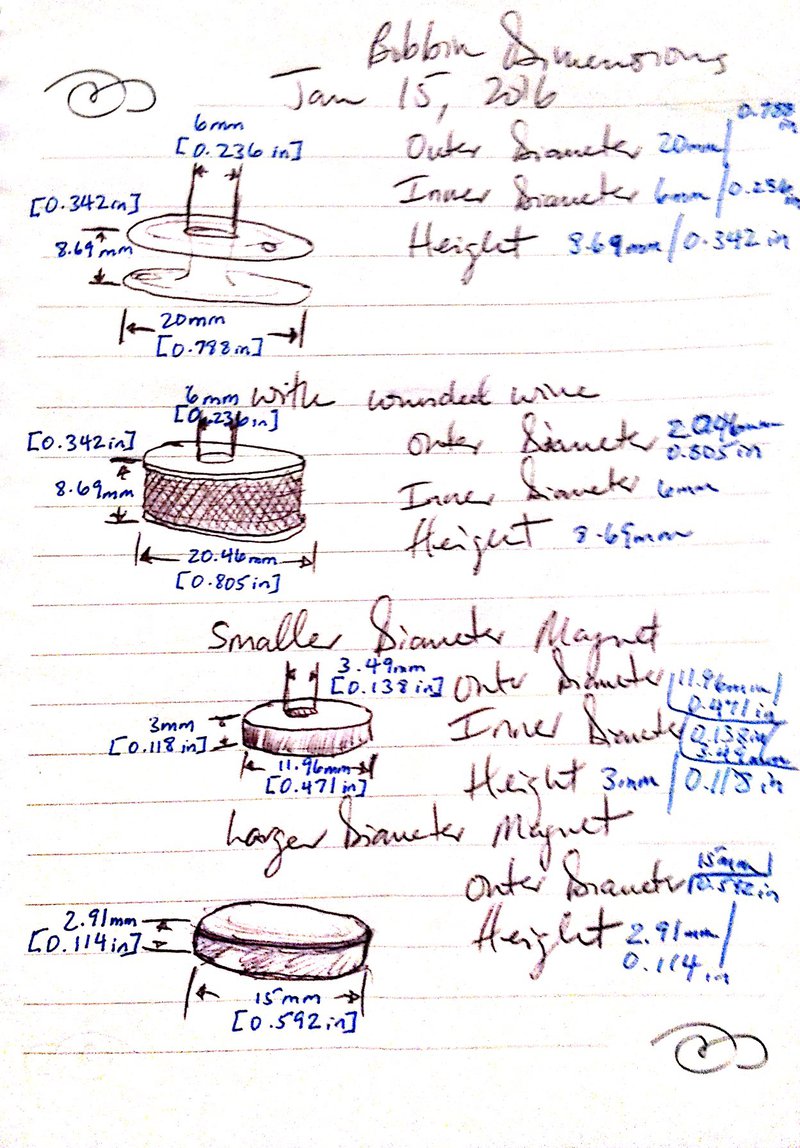 Bobbin Dimensions
Jan 15, 2016
6mm
[0.236 in]
[0.342in]
8.69mm
20mm
[0.788in]
Outer Diameter 20mm/ 0.788 in
Inner Diameter 6mm/0.236in
Height 8.69mm/0.342 in
with wounded wire
6mm
[0.236in]
[0.342in]
8.69mm
20.46mm
[0.805 in]
Outer Diameter 20.46mm
0.805 in
Inner Diameter 6mm
Height 8.69mm
Smaller Diameter Magnet
3.49mm
[0.138 in]
3mm
[0.118 in]
11.96mm
[0.471 in]
Outer Diameter 11.96mm/
0.471 in
Inner Diameter 0.138in/
3.49mm
Height 3mm/0.118 in
Larger Diameter Magnet
2.91mm
[0.114in]
15mm
[0.592in]
Outer Diameter 15mm/
0.592in
Height 2.91mm/
0.114 in